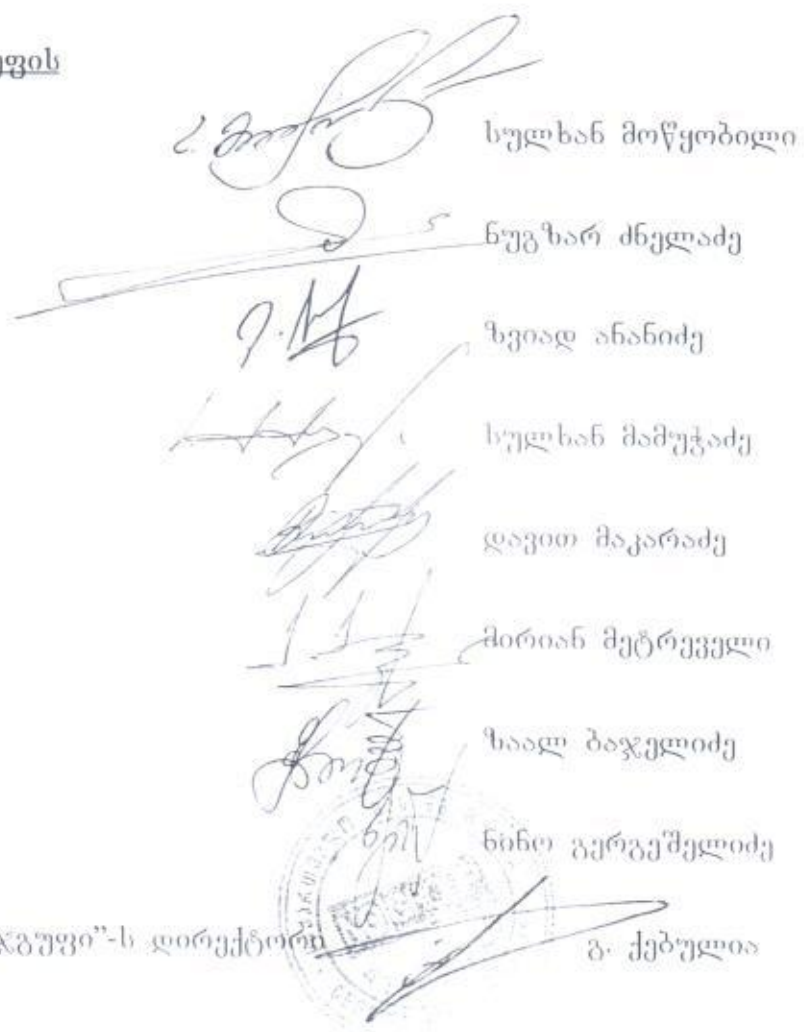 სულხან მოწყობილი
ნუგზარ ძნელაძე
ზვიად ანანიძე
სულხან მამუჭაძე
დავით მაკარაძე
მირიან მეტრეველი
ზაალ ბაჯელიძე
ნინო გერგეშელიძე
ჯგუფი”-ს დირექტორი გ. ქებულია